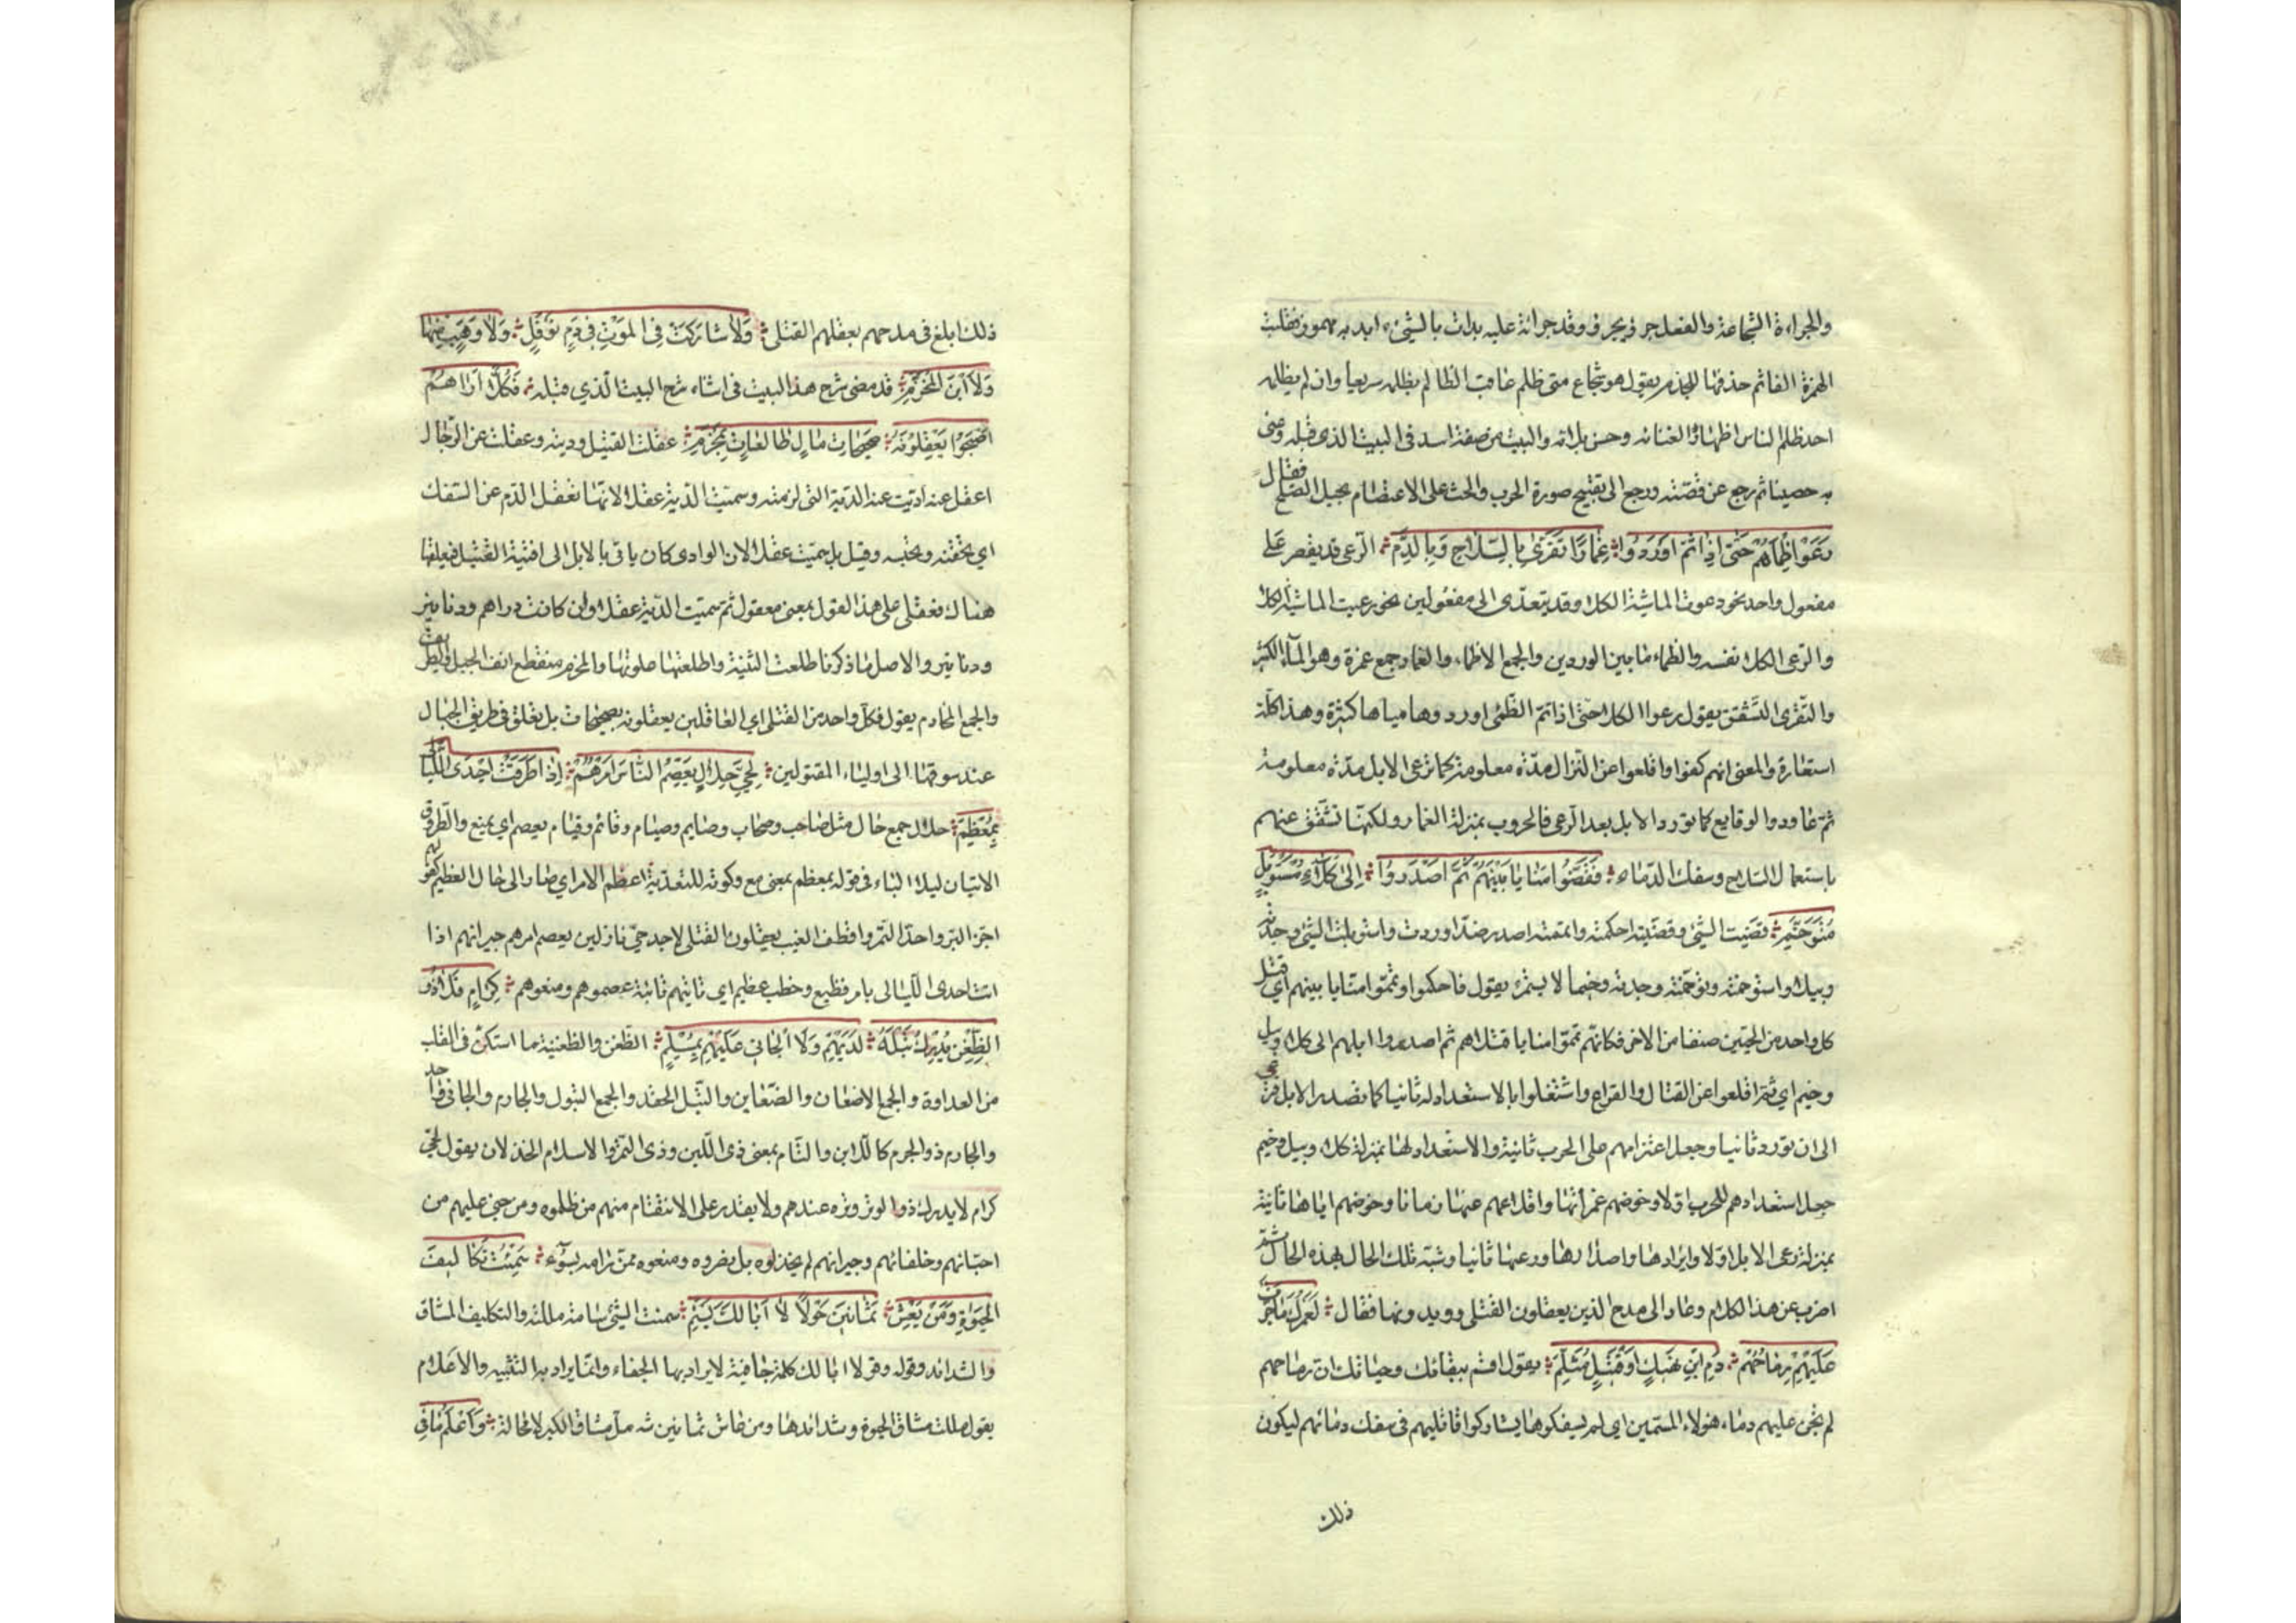 والجراءة الشجاعة والفعل جرؤ يجرؤ وقد جرأته عليه بدات بالشيء ابد به مهموز فقلبت
الهمزة الفا ثم حذفها للجزم يقول هو شجاع متى ظلم عاقب الظالم بظلمه سريعا وان لم يظلمه
احد ظلم الناس اظهارا لغنائه وحسن بلائه والبيت من صفة اسد في البيت الذي قبله وعنى
به حصينا ثم رجع عن قصته ورجع الى تقبيح صورة الحرب والحث على الاعتصام بحبل الصلح فقال
رَعَوْا ظِمْأَهُمْ حَتّى اِذا تَمّ اَوْرَدُوا غِمَارًا تَفَرّى بِالسِّلَاحِ وَبِالدَّمِ الرعى قد يقصر على
مفعول واحد نحو رعت الماشية الكلاء وقد يتعدى الى مفعولين نحو رعيت الماشية الكلاء
والرعى الكلاء نفسه والظماء ما بين الوردين والجمع الاظماء والغمار جمع غمرة وهو الماء الكثير
والتفرى التشقق يقول رعوا الكلاء حتى اذا تم الظمئ اوردوها مياها كثيرة وهذا كله
استعارة والمعنى انهم كفوا واقلعوا عن النزال مدة معلومة كما ترعى الابل مدة معلومة
ثم عاودوا الوقايع كما تورد الابل بعد الرعى فالحروب بمنزلة الغمار ولكنها تشقق عنهم
باستعمال السلاح وسفك الدماء فَقَضَّوْا مَنَايَا بَيْنَهُمْ ثُمَّ اَصْدَرُوا اِلَى كَلَاءٍ مُسْتَوْبِلٍ
مُتَوَخّمِ قضيت الشئ وقضيته احكمته واتممته اصدر ضد اوردت واستوبلت الشئ وجدته
وبيلا واستوخمته وتوخمته وجدته وخيما لا يستمرء يقول فاحكموا وتمموا منايا بينهم اي قتل
كل واحد من الحيين صنفا من الاخر فكانهم تمموا منايا قتلاهم ثم اصدروا ابلهم الى كلاء وبيل
وخيم اي ثم اقلعوا عن القتال والقراع واشتغلوا بالاستعداد له ثانيا كما تصدر الابل فترعى
الى ان تورد ثانيا وجعل اعتزامهم على الحرب ثانية والاستعداد لها بمنزلة كلاء وبيل وخيم
جعل استعدادهم للحرب اولا وخوضهم غمراتها واقلاعهم عنها زمانا وخوضهم اياها ثانية
بمنزلة رعى الابل اولا وايرادها واصدارها ورعيها ثانيا وشبه تلك الحال بهذه الحال ثم
اضرب عن هذا الكلام وعاد الى مدح الذين يعقلون القتلى ويدونها فقال لَعَمْرُكَ مَا جَرَّتْ
عَلَيْهِمْ رِمَاحُهُمْ دَمَ ابْنِ نَهِيكٍ اَوْ قَتِيلِ مُثَلّمِ يقول اقسم ببقائك وحياتك ان رماحهم
لم تجن عليهم دماء هؤلاء المسمين اي لم يسفكوها لم يشاركوا قاتليهم في سفك دمائهم ليكون
ذلك
ذلك ابلغ في مدحهم بعقلهم القتلى وَلَا شَارَكَتْ فِي الْمَوْتِ فِي دَمِ نَوْفَلٍ وَلَا وَهَبٍ مِنْهَا
وَلَا ابْنِ الْمُخَزَّمِ قد مضى شرح هذا البيت في اثناء شرح البيت الذي قبله فَكُلًّا اَرَاهُمْ
اَصْبَحُوا يَعْقِلُونَهُ صَحِيحَاتِ مَالٍ طَالِعَاتٍ بِمَخْرَمِ عقلت القتيل وديته وعقلت عن الرجال
اعقل عنه اديت عنه الدية التي لزمته وسميت الدية عقلا لانها تعقل الدم عن السفك
اي تحقنه وتحبسه وقيل بل سميت عقلا لان الوادى كان ياتى بالابل الى افنية القتيل فيعقلها
هناك فعقل على هذا القول بمعنى معقول ثم سميت الدية عقلا وان كانت دراهم ودنانير
ودنانير والاصل ما ذكرنا طلعت الثنية واطلعتها علوتها والمخرم منقطع انف الجبل والطريق فيه
والجمع المخارم يقول فكل واحد من القتلى اي العاقلين يعقلونه بصحيحات بل تعلق في طريق الجبال
عند سوقها الى اولياء المقتولين لِحَيٍّ حِلَالٍ يَعْصِمُ النَّاسَ اَمْرُهُمْ اِذَا طَرَقَتْ اِحْدَى اللَّيَالِي
بِمُعْظَمِ حلال جمع حال مثل صاحب وصحاب وصايم وصيام وقائم وقيام يعصم اي يمنع والطروق
الاتيان ليلا الباء في قوله بمعظم بمعنى مع وكونه للتعدية اعظم الامر اي صار الى حال العظيم كقولهم
اجز البر واجد التمر واقطف العنب يعقلون القتلى لاجل حي نازلين يعصم امرهم جيرانهم اذا
اتت احدى الليالى بامر فظيع وخطب عظيم اي نابتهم نائبة عصموهم ومنعوهم كِرَامٍ فَلَا ذُو
الضِّغْنِ يُدْرِكُ تَبْلَهُ لَدَيْهِمْ وَلَا الْجَانِي عَلَيْهِمْ بِمُسْلَمِ الضغن والضغينة ما استكن في القلب
من العداوة والجمع الاضغان والضغاين والتبل الحقد والجمع التبول والجارم والجانى واحد
والجارم ذو الجرم كاللابن والتامر بمعنى ذى اللبن وذى التمر والاسلام الخذلان يقول لحي
كرام لا يدرك ذو الوتر وتره عندهم ولا يقدر على الانتقام منهم من ظلموه ومن جنى عليهم من
احبائهم وحلفائهم وجيرانهم لم يخذلوه بل نصروه ومنعوه ممن رامه بسوء سَئِمْتُ تَكَالِيفَ
الْحَيَوةِ وَمَنْ يَعِشْ ثَمَانِينَ حَوْلًا لَا اَبَا لَكَ يَسْئَمِ سئمت الشئ سامة مللته والتكليف المشاق
والشدائد وقوله وقولا ابا لك كلمة جافية لا يراد بها الجفاء وانما يراد بها التنبيه والاعلام
يقول مللت مشاق الحيوة وشدائدها ومن عاش ثمانين سنة مل مشاق الكبر لا محالة وَاَعْلَمُ مَا فِي